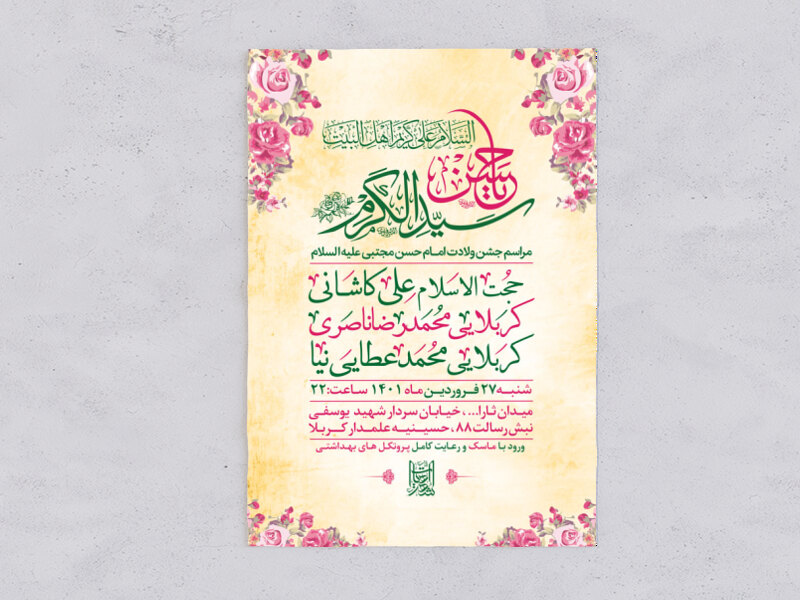 السلام علی کریم اهل البیت
یا حسن
سیدالکرم
مراسم جشن ولادت امام حسن مجتبی علیه السلام
حجت الاسلام علی کاشانی
کربلایی محمدرضا ناصری
کربلایی محمد عطایی نیا
شنبه ۲۷ فروردین ماه ۱۴۰۱ ساعت: ۲۲
میدان ثارا...، خیابان سردار شهید یوسفی
نبش رسالت ۸۸، حسینیه علمدار کربلا
ورود با ماسک و رعایت کامل پروتکل های بهداشتی